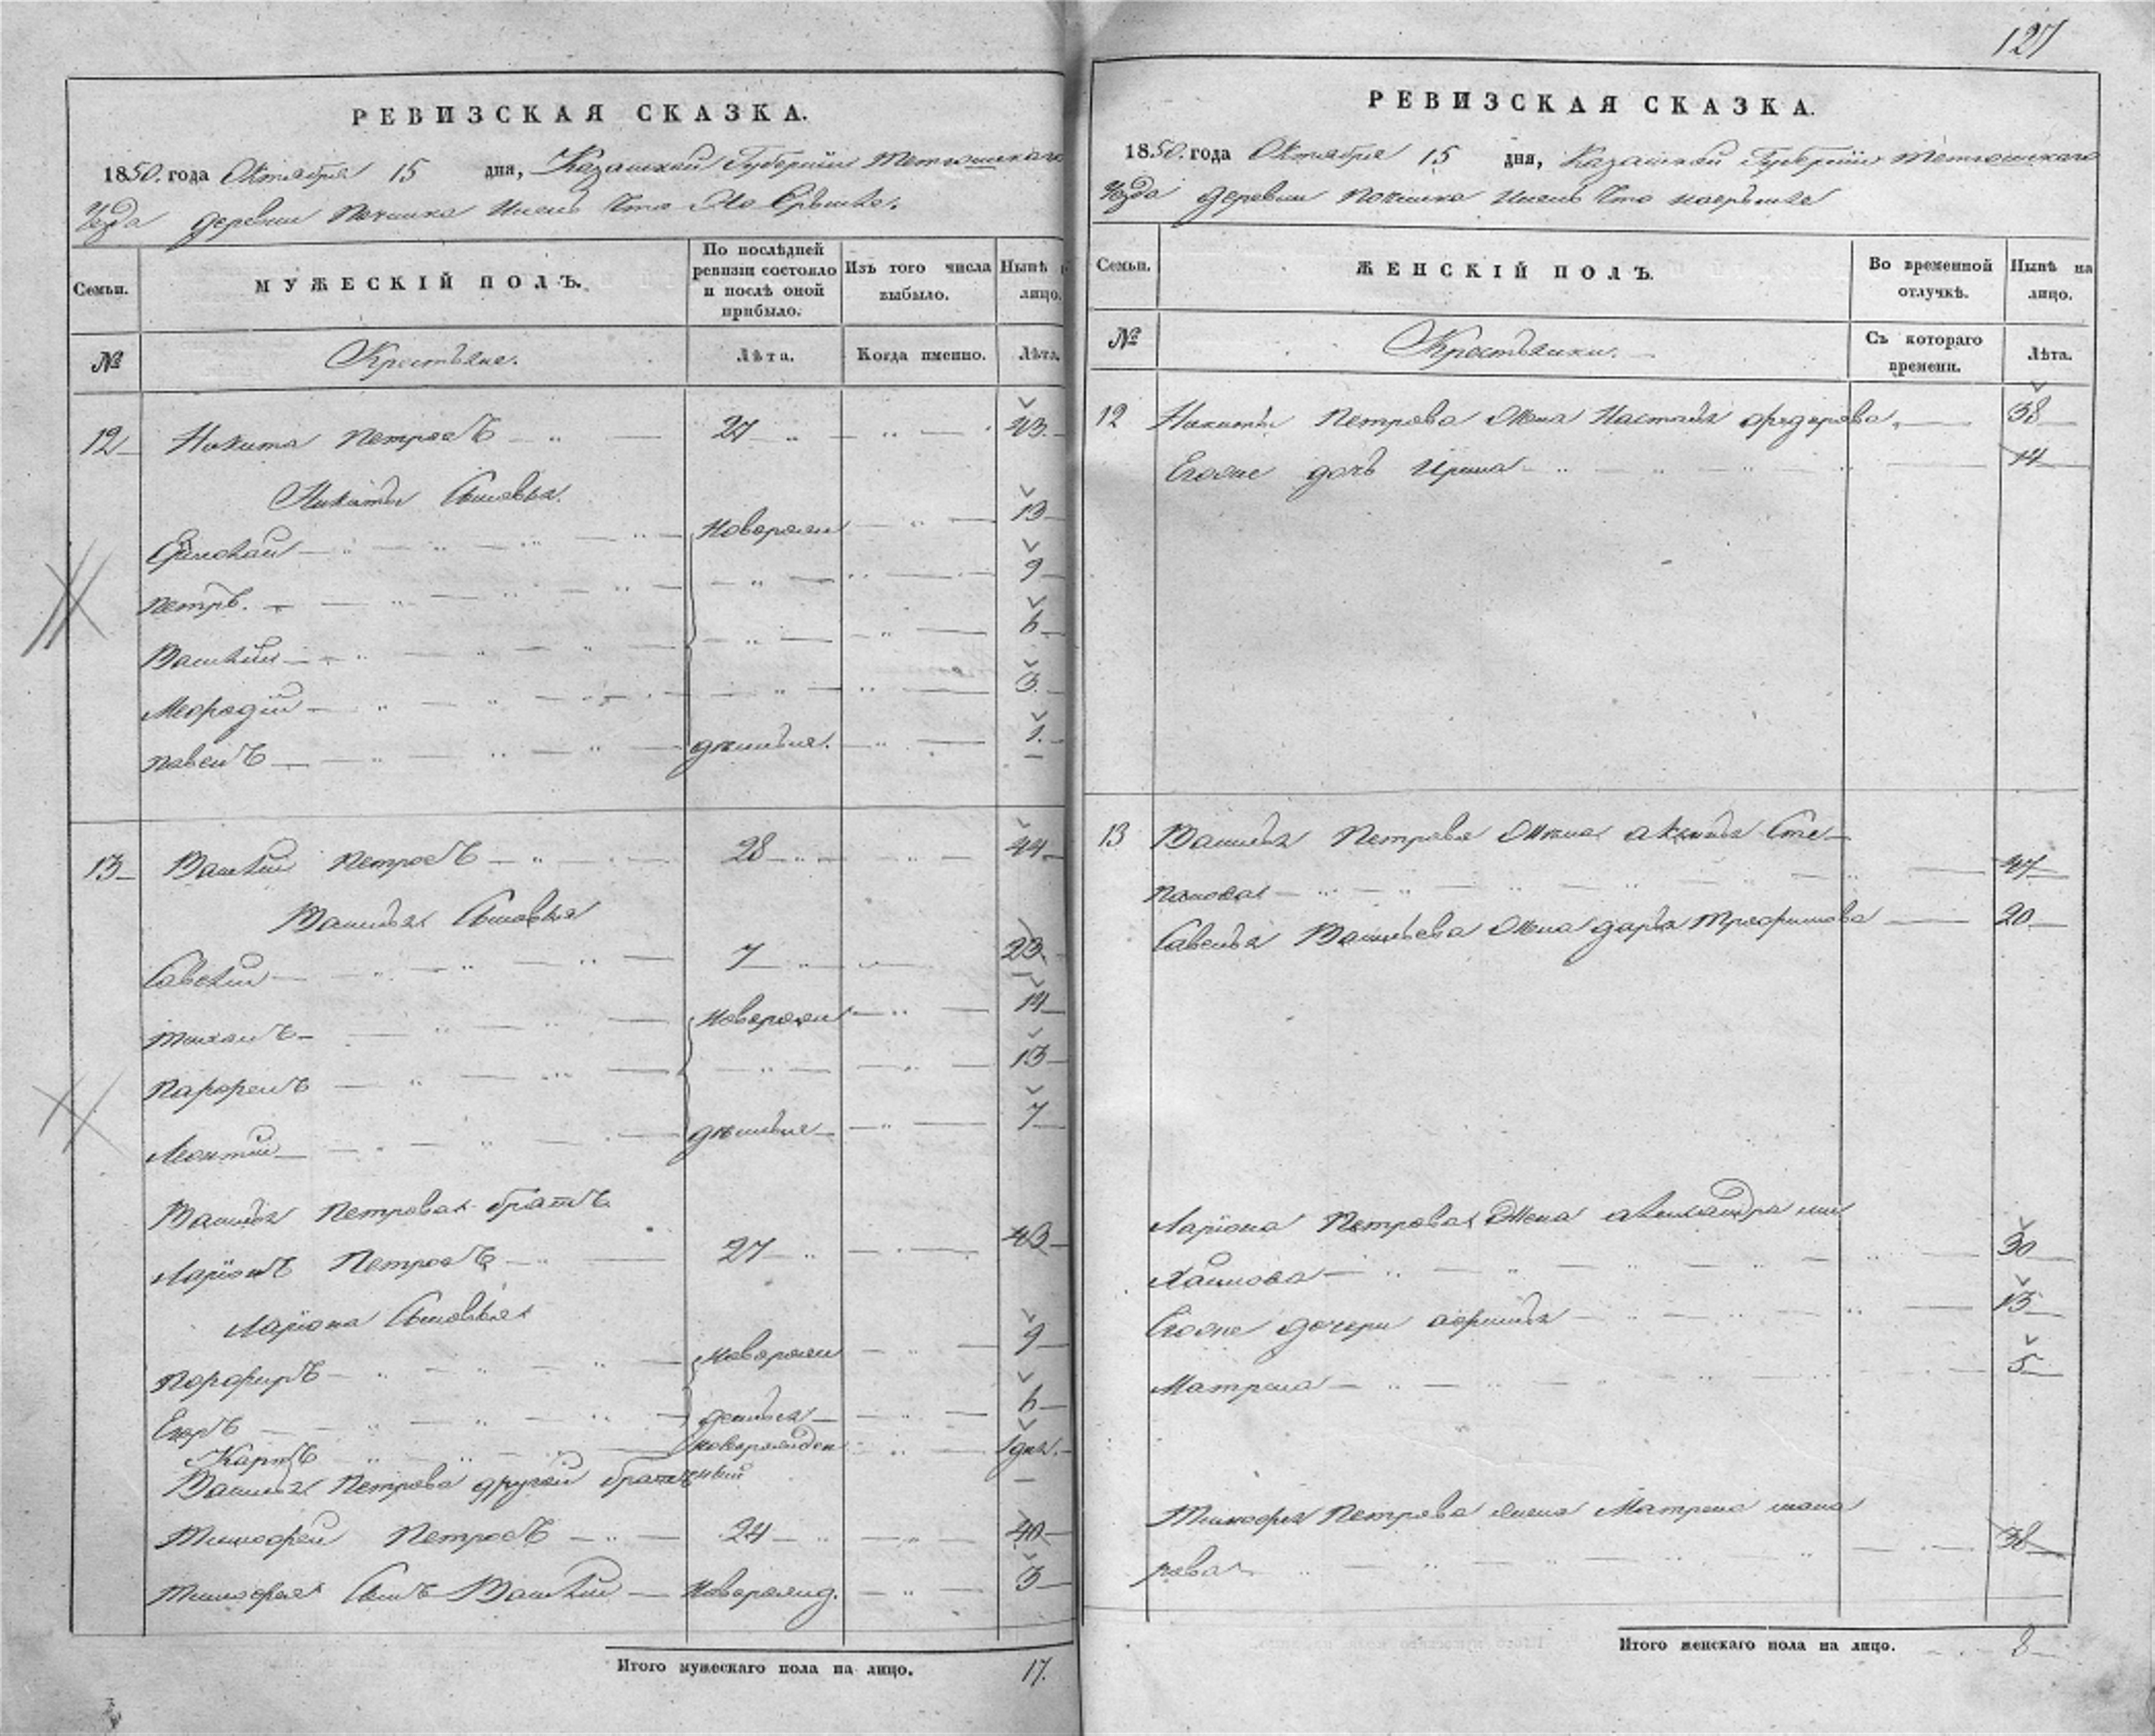 127
РЕВИЗСКАЯ СКАЗКА.
1850. года Октября 15 дня, Казанской Губернии Тетюшскаго
Уезда деревни Починка
Семьи.
МУЖЕСКІЙ ПОЛЪ.
По послѣдней ревизіи состояло и послѣ оной прибыло.
Изъ того числа выбыло.
Нынѣ лицо.
№
Крестьяне.
Лѣта.
Когда именно.
Лѣта.
12 Никита Петровъ 27 43
Никиты Сыновья
Новорожен 13
Петръ. 9
Василий 6
Мефодий 3.
Павелъ 1.
13 Василий Петровъ 28 44
Василья Сыновья
Савелий 7 23
Новорожен 14
Парфенъ 13
Леонтий 7
Василья Петрова братъ
Ларіонъ Петровъ 27 43
Ларіона Сыновья
Порфиръ Новорожен 9
Егоръ 6
Карпъ 1 дня.
Василья Петрова другой братъ
Тимофей Петровъ 24 40
Тимофея Сынъ Василий Новорожд. 3
Итого мужескаго пола на лицо. 17.
РЕВИЗСКАЯ СКАЗКА.
1850. года Октября 15 дня, Казанской Губернии Тетюшскаго
Уезда деревни Починка
Семьи.
ЖЕНСКІЙ ПОЛЪ.
Во временной отлучкѣ.
Нынѣ на лицо.
№
Крестьянки.
Съ котораго времени.
Лѣта.
12 Никиты Петрова Жена Настасья Федорова 38
Егоже дочь Ирина 14
13 Василья Петрова Жена Сте-
панова 47
Савелья Васильева Жена Дарья Трофимова 20
Ларіона Петрова Жена Александра Ми
хайлова 30
Егоже дочери 15
Матрена 5
Тимофея Петрова жена Матрена
38
Итого женскаго пола на лицо. 8